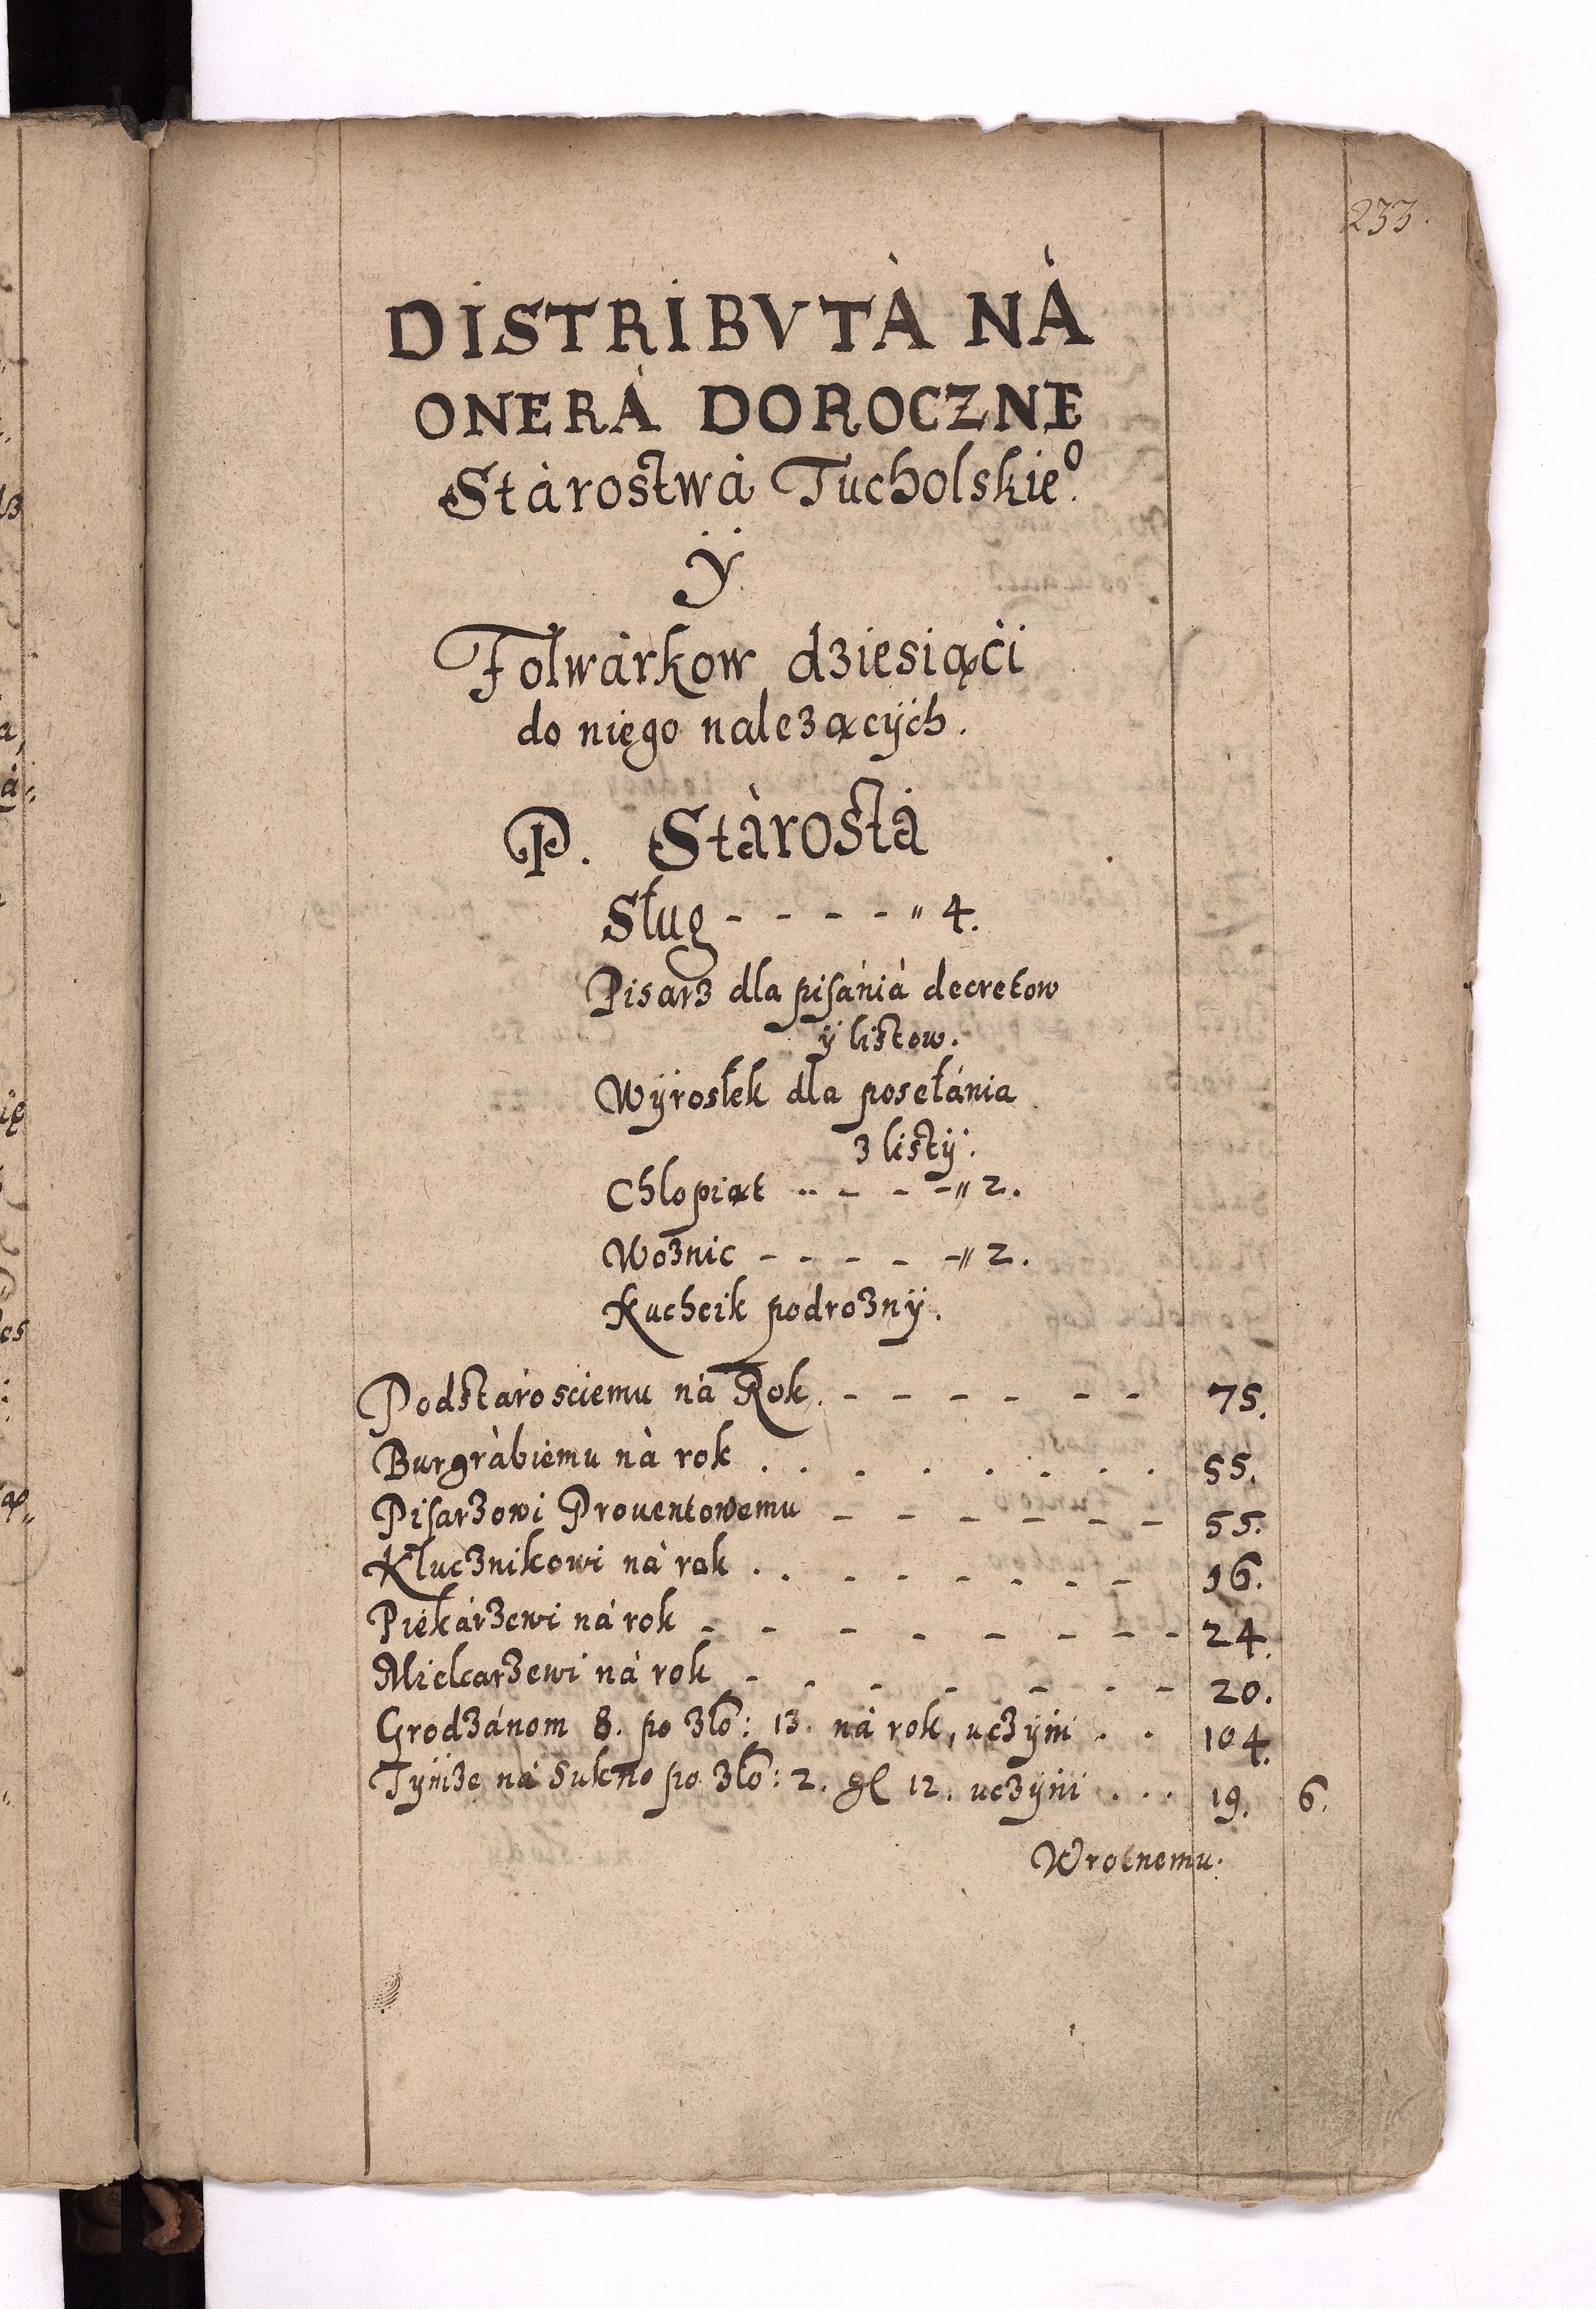 233.
DISTRIBVTÀ NÀ
ONERÀ DOROCZNE
Stàrostwà Tucholskieº.
ÿ
Folwàrkow dziesiąći
do niego należącÿch.
P. Stàrostà
Sług - - - - " 4.
Pisarz dla pisánià decretow
ÿ listow.
Wÿrostek dla posełánia
z listÿ.
Chlopiąt - - - - " 2.
Woznic - - - - - " 2.
Kuchcik podroznÿ.
Podstàrosciemu nà Rok. - - - - - - 75.
Burgràbiemu nà rok . . . . . . . . 55.
Pisarzowi Prouentowemu - - - - - - 55.
Klucznikowi nà rok . . - - - - - - 16.
Piekàrzewi nà rok - - - - - - - - 24.
Mielcarzewi nà rok - - - - - - - - 20.
Grodzánom 8. po zło: 13. nà rok, uczÿni . . 104.
Tÿmze nà Sukno po zło: 2. gl 12. uczÿni . . . 19. 6.
Wrotnemu.